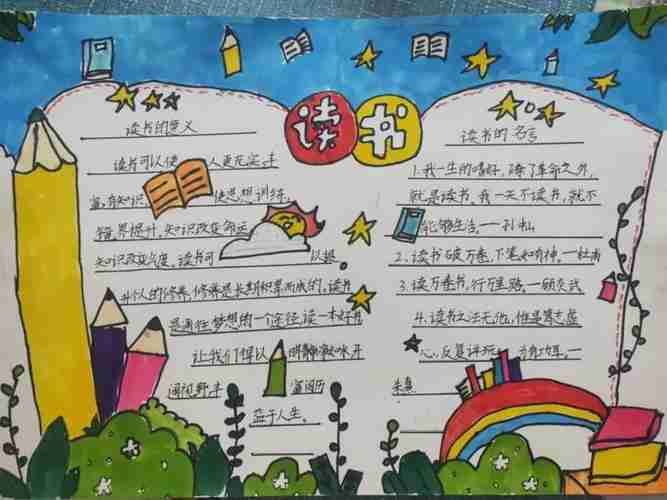 读书
读书的意义
读书可以使人更充实丰
富,有知识,使思想训练,
境界提升,知识改变命运
知识改变气度。读书可以提
升个人的修养,修养是长期积累而成的。读书
是通往梦想的一个途径,读一本好书
让我们得以明静如水,开
阔视野丰富阅历
益于人生。
读书的名言
1.我一生的嗜好,除了革命之外,
就是读书。我一天不读书,就不
能够生活。一孙中山
2、读书破万卷,下笔如有神。一杜甫
3、读万卷书,行万里路。一顾炎武
4.读书之法无他,惟是笃志虚
心,反复详玩,为有功耳。一
朱熹